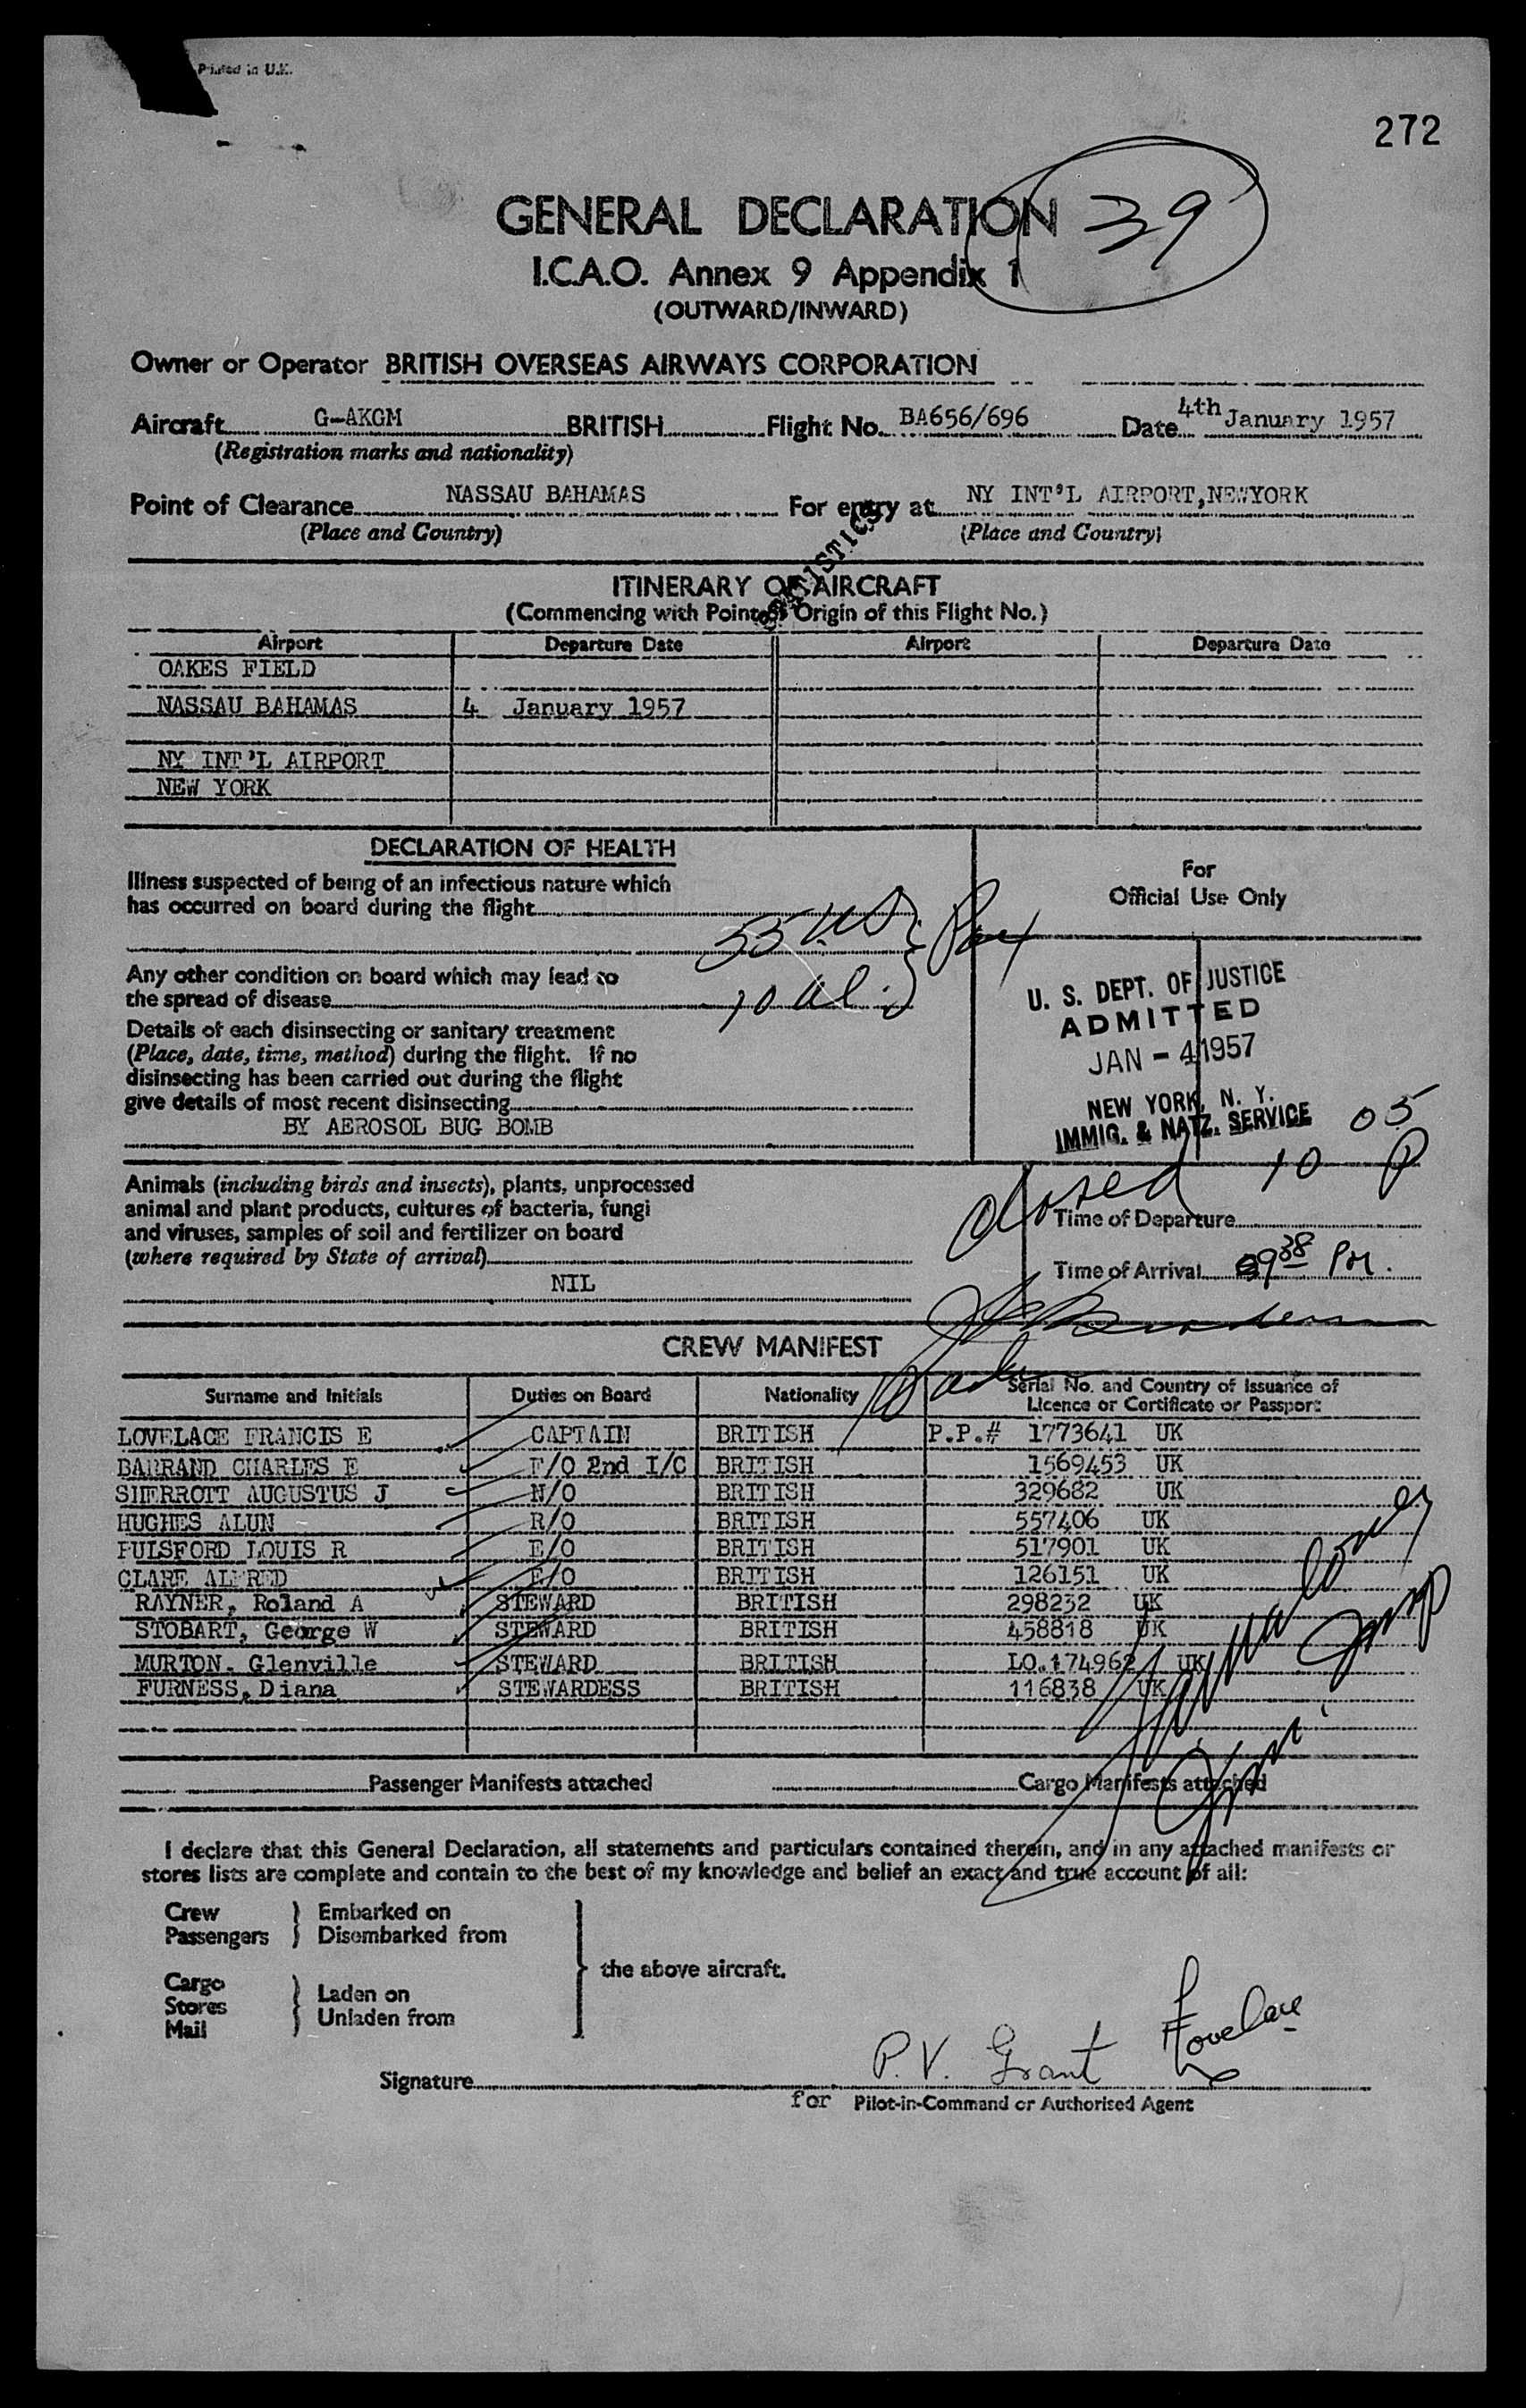 Printed in U.K.
272
GENERAL DECLARATION
39
I.C.A.O. Annex 9 Appendix 1
(OUTWARD/INWARD)
Owner or Operator BRITISH OVERSEAS AIRWAYS CORPORATION
Aircraft G-AKGM BRITISH Flight No. BA656/696 Date 4th January 1957
(Registration marks and nationality)
Point of Clearance NASSAU BAHAMAS For entry at NY INT'L AIRPORT, NEWYORK
(Place and Country) (Place and Country)
ITINERARY OF AIRCRAFT
(Commencing with Point of Origin of this Flight No.)
Airport Departure Date Airport Departure Date
OAKES FIELD
NASSAU BAHAMAS 4 January 1957
NY INT'L AIRPORT
NEW YORK
DECLARATION OF HEALTH
Illness suspected of being of an infectious nature which
has occurred on board during the flight
For
Official Use Only
55 US
10 Al.
Pax
Any other condition on board which may lead to
the spread of disease
Details of each disinsecting or sanitary treatment
(Place, date, time, method) during the flight. If no
disinsecting has been carried out during the flight
give details of most recent disinsecting
BY AEROSOL BUG BOMB
U. S. DEPT. OF JUSTICE
ADMITTED
JAN - 4 1957
NEW YORK, N. Y.
IMMIG. & NATZ. SERVICE
closed 10 05 P
Animals (including birds and insects), plants, unprocessed
animal and plant products, cultures of bacteria, fungi
and viruses, samples of soil and fertilizer on board
(where required by State of arrival)
NIL
Time of Departure
Time of Arrival 9 38 PM.
CREW MANIFEST
Surname and Initials Duties on Board Nationality Serial No. and Country of Issuance of
Licence or Certificate or Passport
LOVELACE FRANCIS E CAPTAIN BRITISH P.P.# 1773641 UK
BARRAND CHARLES E F/O 2nd I/C BRITISH 1569453 UK
SHERROTT AUGUSTUS J N/O BRITISH 329682 UK
HUGHES ALUN R/O BRITISH 557406 UK
PULSFORD LOUIS R E/O BRITISH 517901 UK
CLARE ALFRED E/O BRITISH 126151 UK
RAYNER, Roland A STEWARD BRITISH 298232 UK
STOBART, George W STEWARD BRITISH 458818 UK
MURTON. Glenville STEWARD BRITISH LO.174962 UK
FURNESS, Diana STEWARDESS BRITISH 116838 UK
Passenger Manifests attached Cargo Manifests attached
I declare that this General Declaration, all statements and particulars contained therein, and in any attached manifests or
stores lists are complete and contain to the best of my knowledge and belief an exact and true account of all:
Crew
Passengers
Embarked on
Disembarked from
Cargo
Stores
Mail
Laden on
Unladen from
the above aircraft.
Signature P.V. Grant Lovelace
for Pilot-in-Command or Authorised Agent